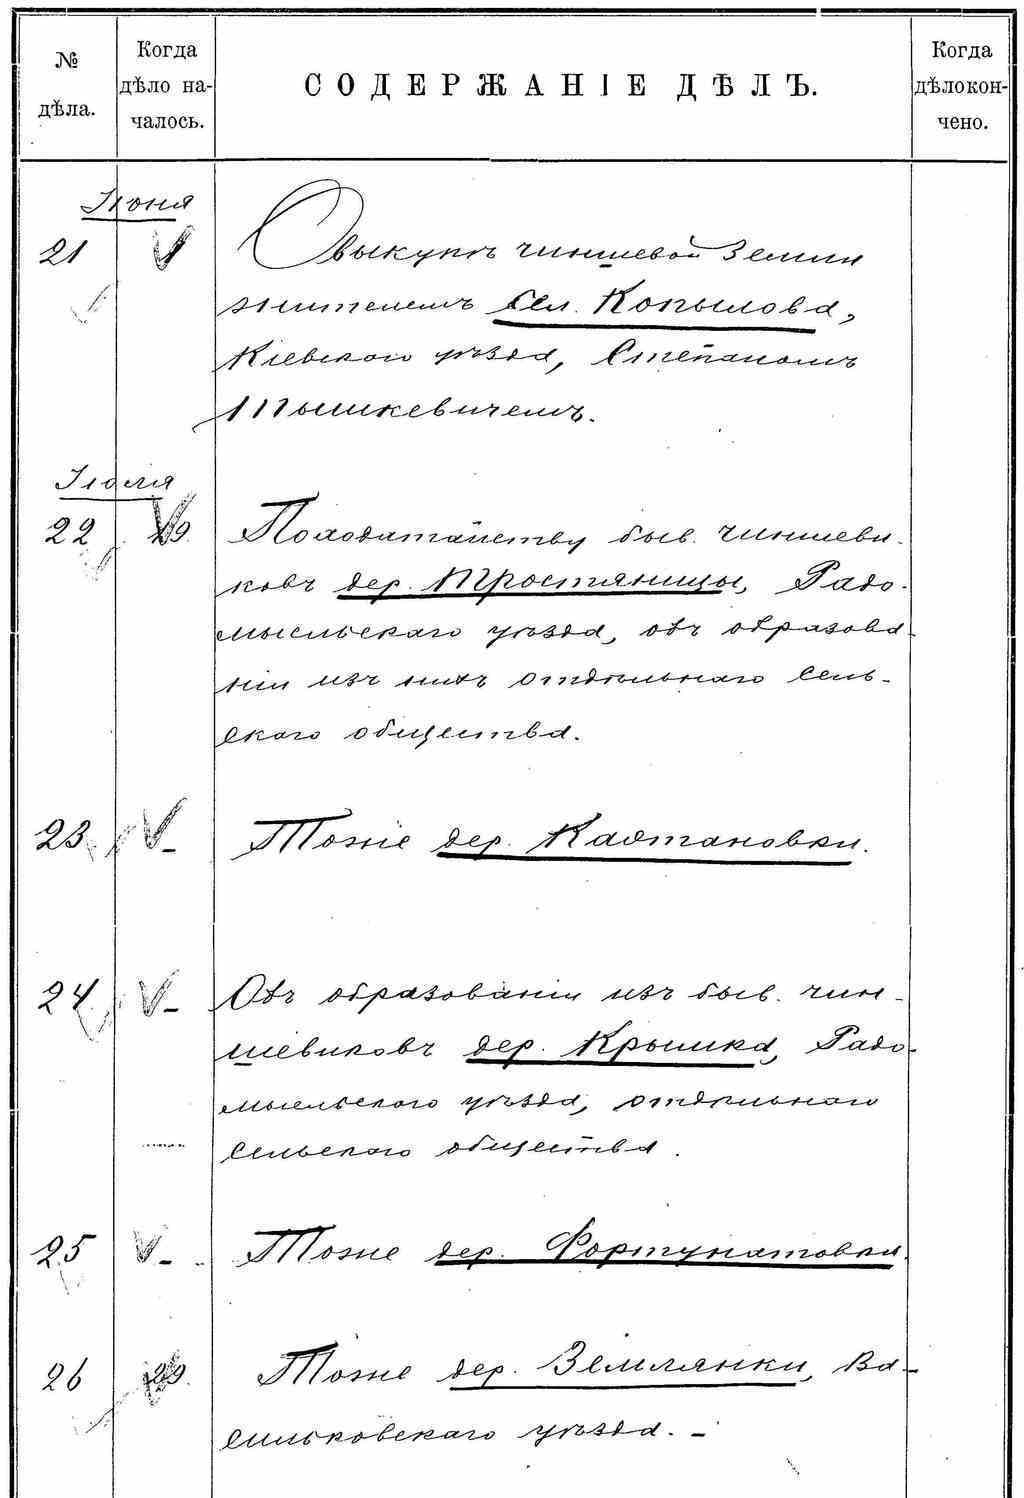 № дѣла.
Когда дѣло на-чалось.
СОДЕРЖАНІЕ ДѢЛЪ.
Когда дѣло кон-чено.
Іюня
21 О выкупѣ чиншевой земли
жителемъ сел. Копылова,
Кіевского уѣзда, Степаномъ
Тышкевичемъ.
Іюля
22 19. По ходатайству быв. чиншеви-
ковъ дер. Тростяницы, Радо-
мысльскаго уѣзда, объ образова-
ніи изъ нихъ отдѣльнаго сель-
скаго общества.
23 - Тоже дер. Каштановки.
24 - Объ образованіи изъ быв. чин-
шевиковъ дер. Крышка, Радо-
мысльскаго уѣзда, отдѣльнаго
сельскаго общества.
25 - Тоже дер. Фортунатовки.
26 29. Тоже дер. Землянки, Ва-
сильковскаго уѣзда. -